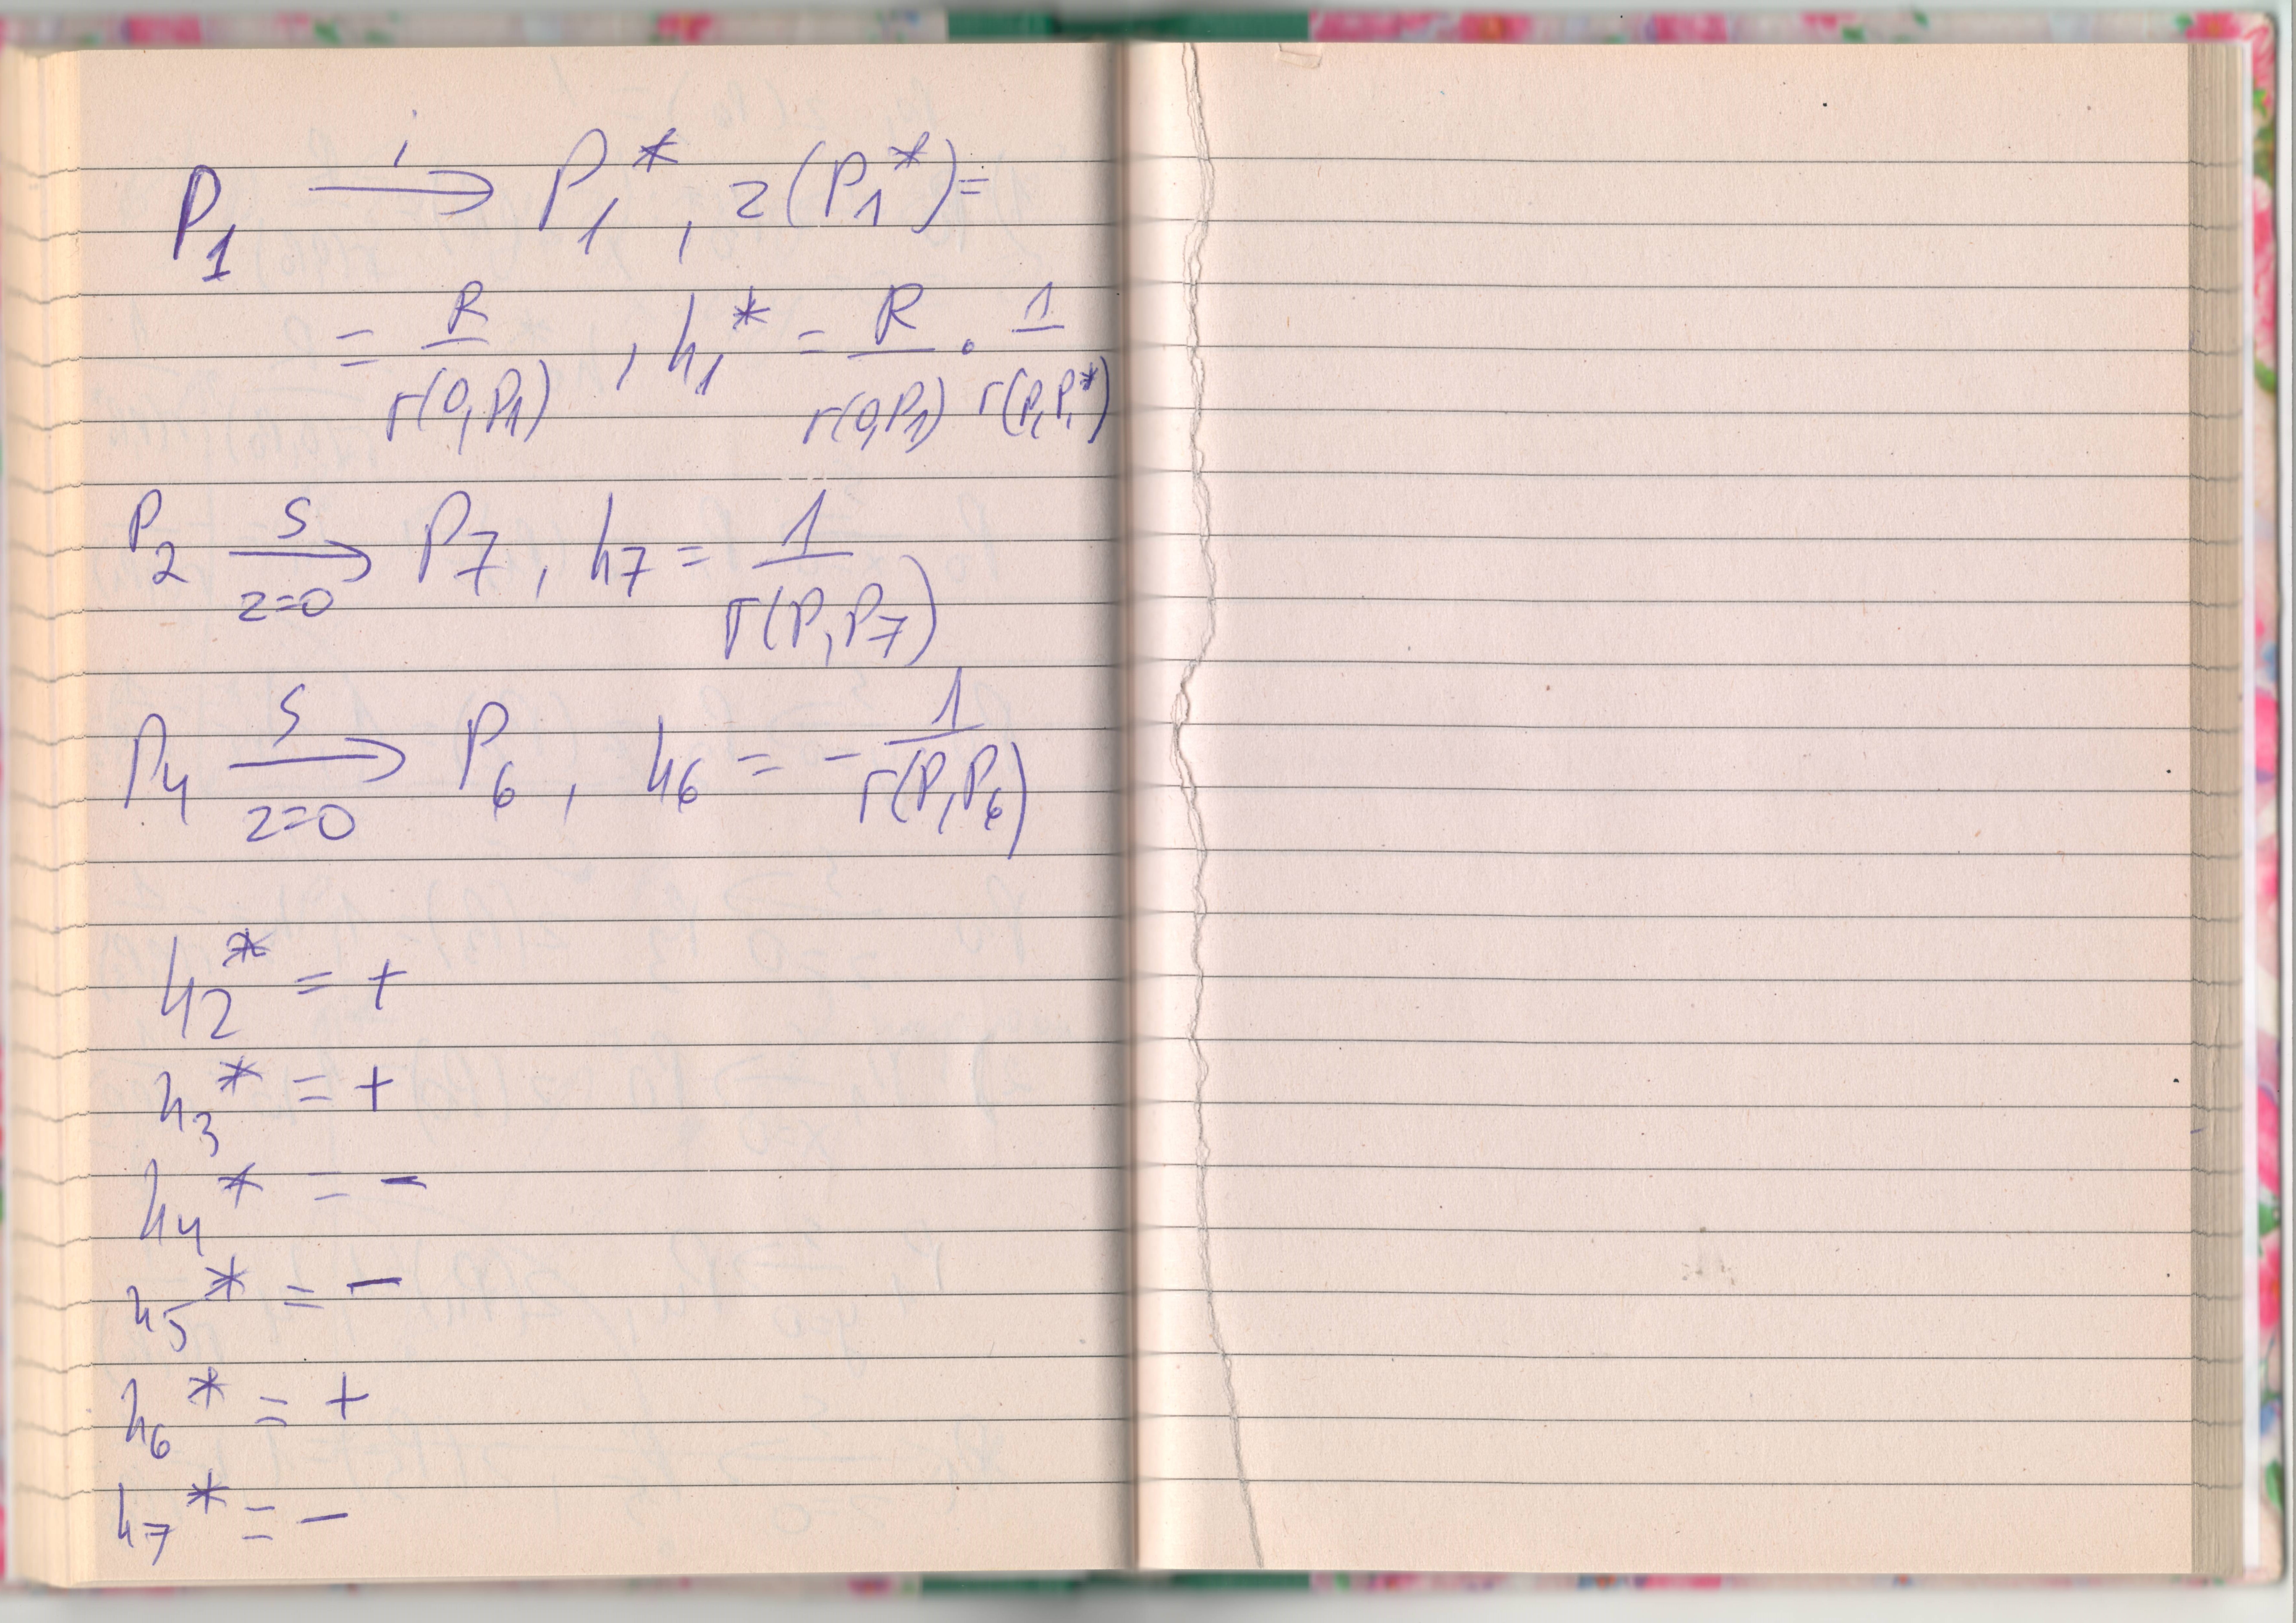 P₁ —i→ P₁*, z(P₁*)=
= R / r(0,P₁) , h₁* = R / r(0,P₁) · 1 / r(P,P₁*)
P₂ —S→ (z=0) P₇, h₇ = 1 / r(P,P₇)
P₄ —S→ (z=0) P₆, h₆ = - 1 / r(P,P₆)
h₂* = +
h₃* = +
h₄* = -
h₅* = -
h₆* = +
h₇* = -